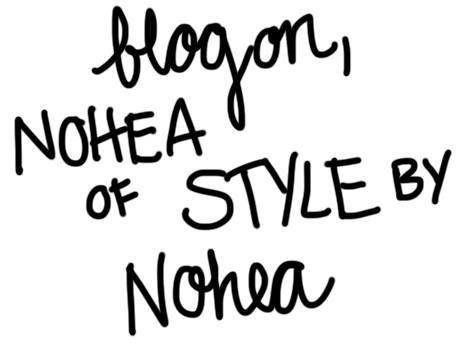 blog on,
NOHEA
OF STYLE BY
Nohea